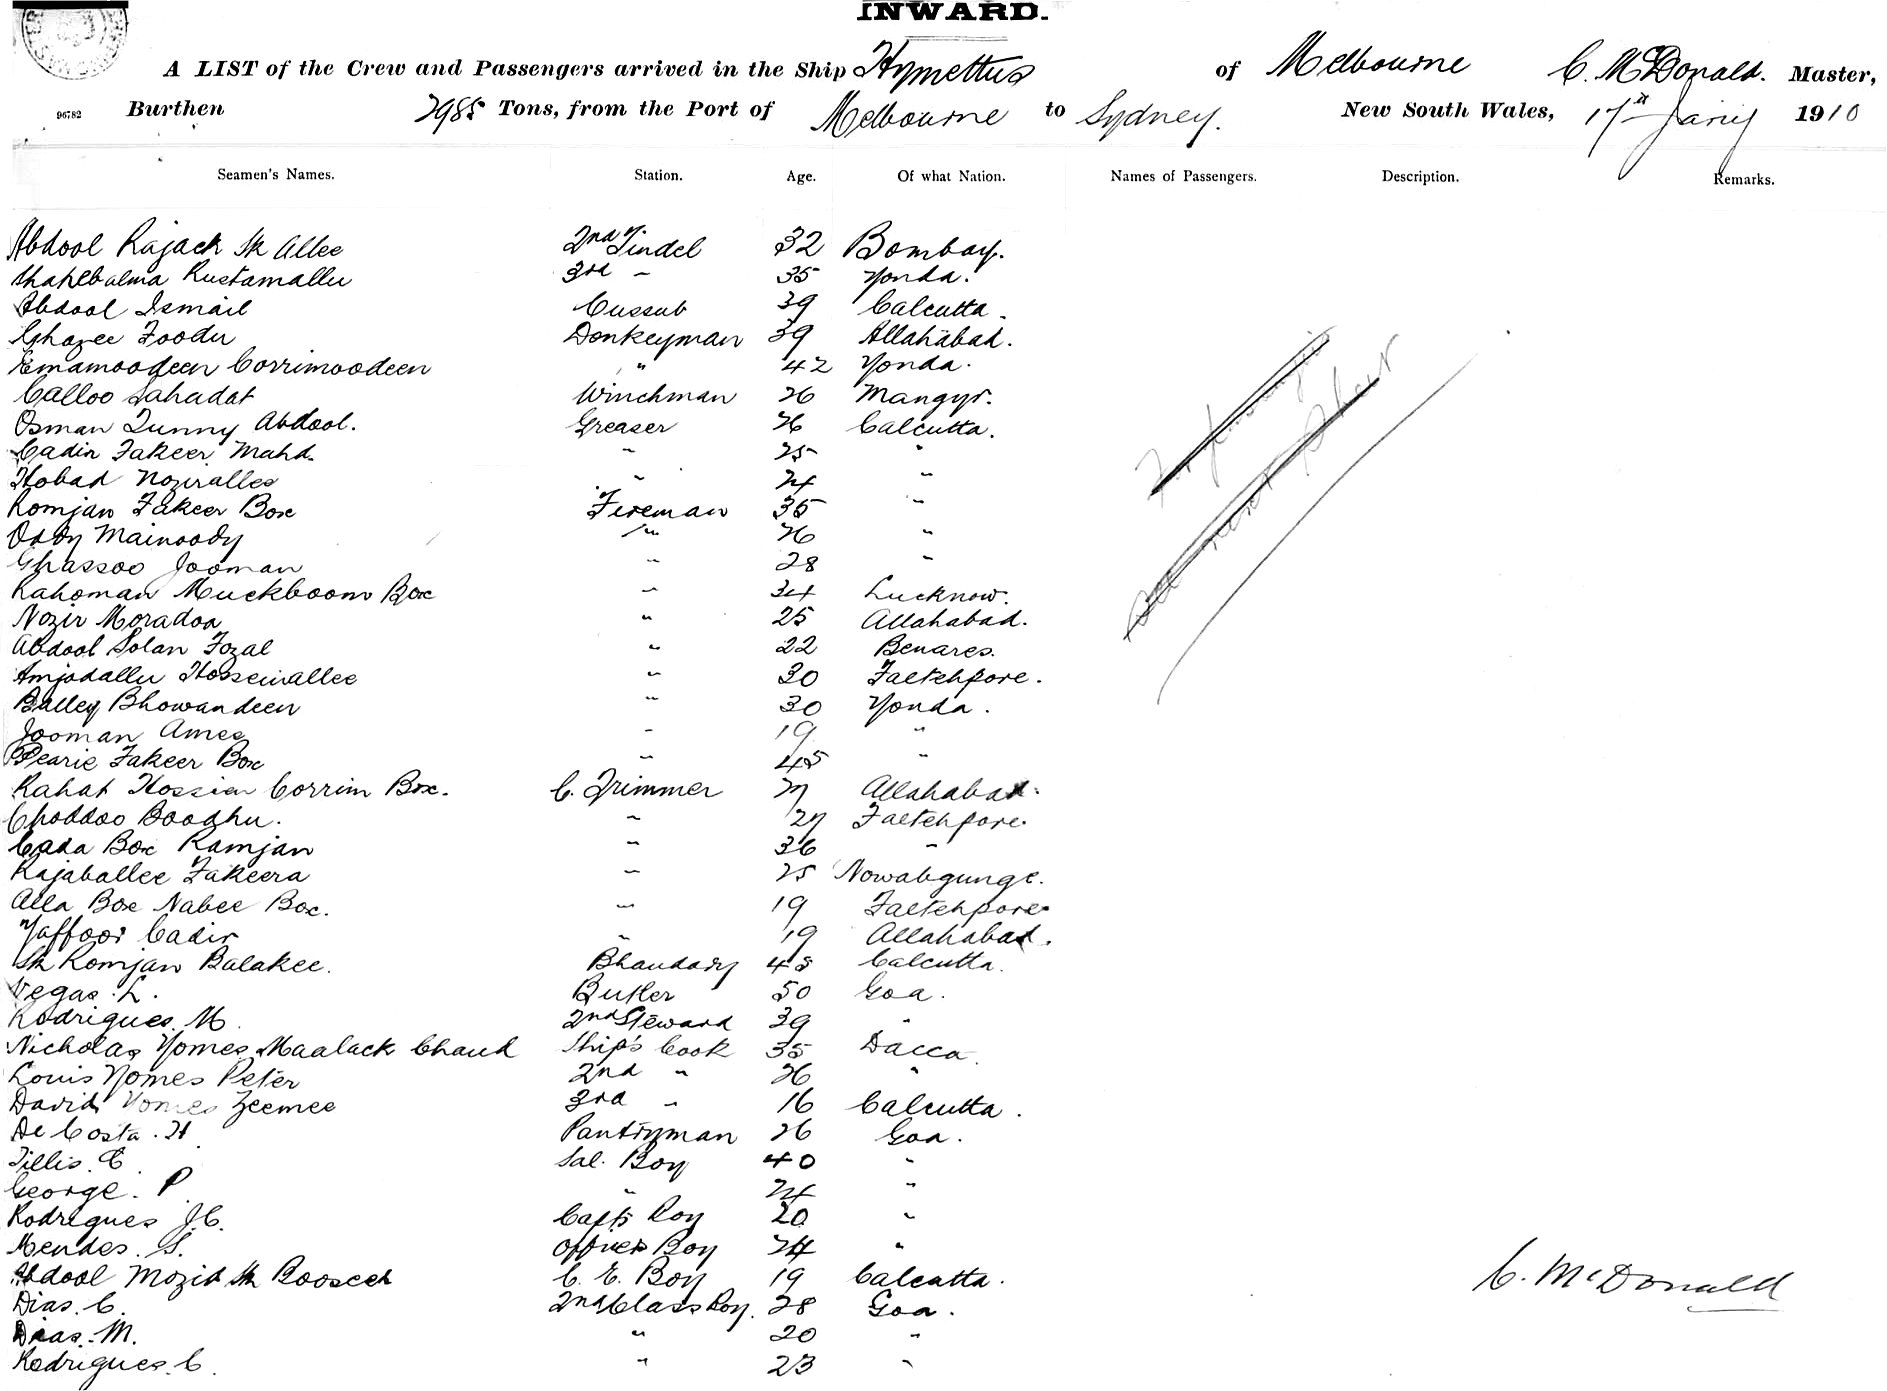 INWARD.
A LIST of the Crew and Passengers arrived in the Ship Hymettus of Melbourne C. McDonald. Master,
96782 Burthen 2985 Tons, from the Port of Melbourne to Sydney. New South Wales, 17th Jany 1910
Seamen's Names. Station. Age. Of what Nation. Names of Passengers. Description. Remarks.
Abdool Rajack Sk Allee 2nd Tindel 32 Bombay.
Rustamallu 3rd " 35 Yonda.
Abdool Ismail Cussub 39 Calcutta.
Ghazee Foodu Donkeyman 39 Allahabad.
Emamoodeen Corrimoodeen " 42 Yonda.
Calloo Sahadat Winchman 26 Mangyr.
Osman Dunny Abdool. Greaser 26 Calcutta.
Cadir Fakeer Mahd. " 25 "
Hobad Noziralles " 24 "
Romjan Fakeer Box Fireman 35 "
Oddy Mainoody " 26 "
Ghassoo Jooman " 28 "
Rahoman Muckboom Box " 34 Lucknow.
Nozir Moradoa " 25 Allahabad.
Abdool Solan Fozal " 22 Benares.
Amjadallu Hosseinallee " 30 Faetehpore.
Balley Bhowandeen " 30 Yonda.
Jooman Amee " 19 "
Pearie Fakeer Box " 45 "
Rahat Hossien Corrim Box. C. Trimmer 27 Allahabad.
Choddoo Boodhu. " 27 Faetehpore
Cada Box Ramjan " 36 "
Rajaballee Fakeera " 25 Nowabgunge.
Alla Box Nabee Box. " 19 Faetehpore
Yaffoor Cadir " 19 Allahabad.
Sk Romjan Balakee. Bhandary 45 Calcutta.
Vegas. L. Butler 50 Goa.
Rodrigues. M. 2nd Steward 39 "
Nicholas Yomes Maalack Chand Ship's Cook 35 Dacca.
Louis Yomes Peter 2nd " 26 "
David Yomes Zeemee 3rd " 16 Calcutta.
De Costa. H Pantryman 26 Goa.
Tillis. C. Sal. Boy 40 "
George. P " 24 "
Rodrigues J.C. Capts Boy 20 "
Mendes. S. Officers Boy 24 "
Abdool Mozid Sk Booseed C. E. Boy 19 Calcutta.
Dias. C. 2nd Class Boy. 28 Goa.
Dias. M. " 20 "
Rodrigues. C. " 23 "
C. McDonald